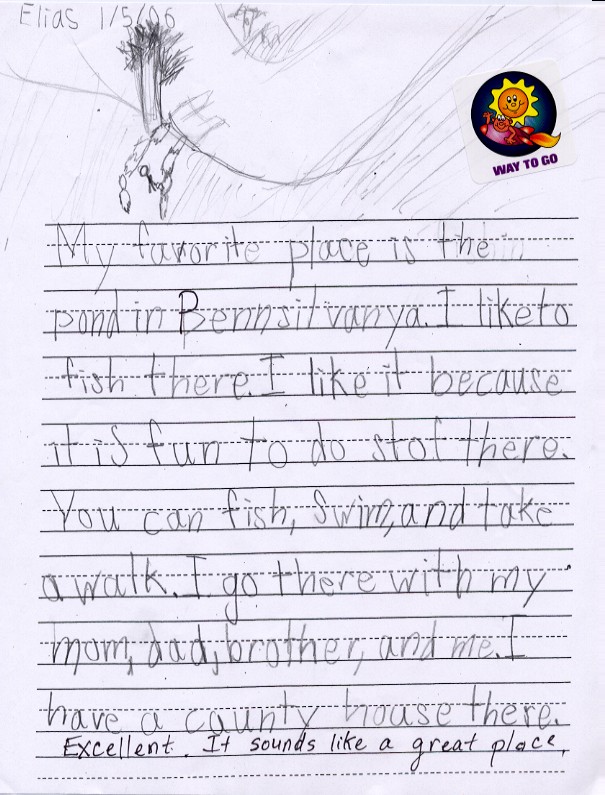 Elias 1/5/06
WAY TO GO
My favorite place is the
pond in Pennsilvanya. I like to
fish there. I like it because
it is fun to do stof there.
You can fish, swim, and take
a walk. I go there with my
mom, dad, brother, and me. I
have a caunty house there.
Excellent. It sounds like a great place.